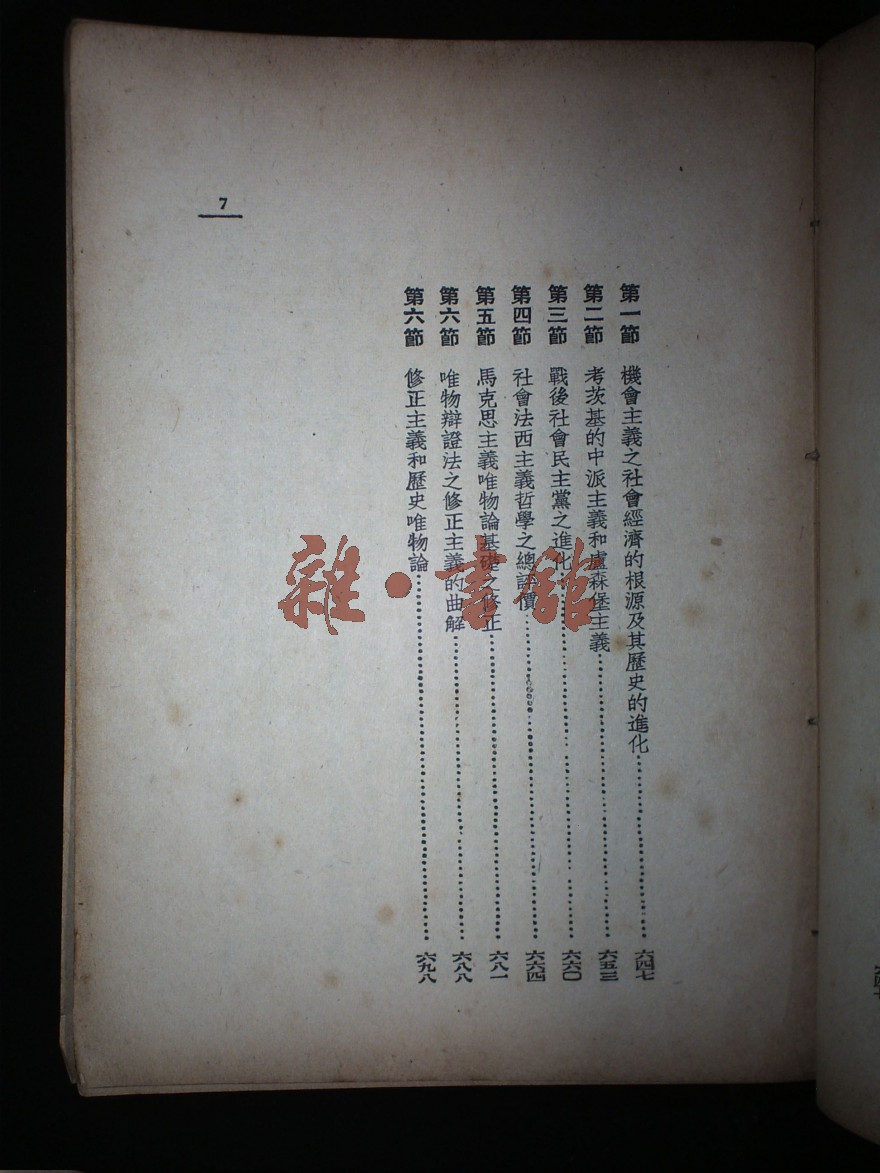 7
第一節 機會主義之社會經濟的根源及其歷史的進化……六四七
第二節 考茨基的中派主義和盧森堡主義……六五三
第三節 戰後社會民主黨之進化……六六〇
第四節 社會法西主義哲學之總評價……六六四
第五節 馬克思主義唯物論基礎之修正……六八一
第六節 唯物辯證法之修正主義的曲解……六八八
第六節 修正主義和歷史唯物論……六九八
雜·書館